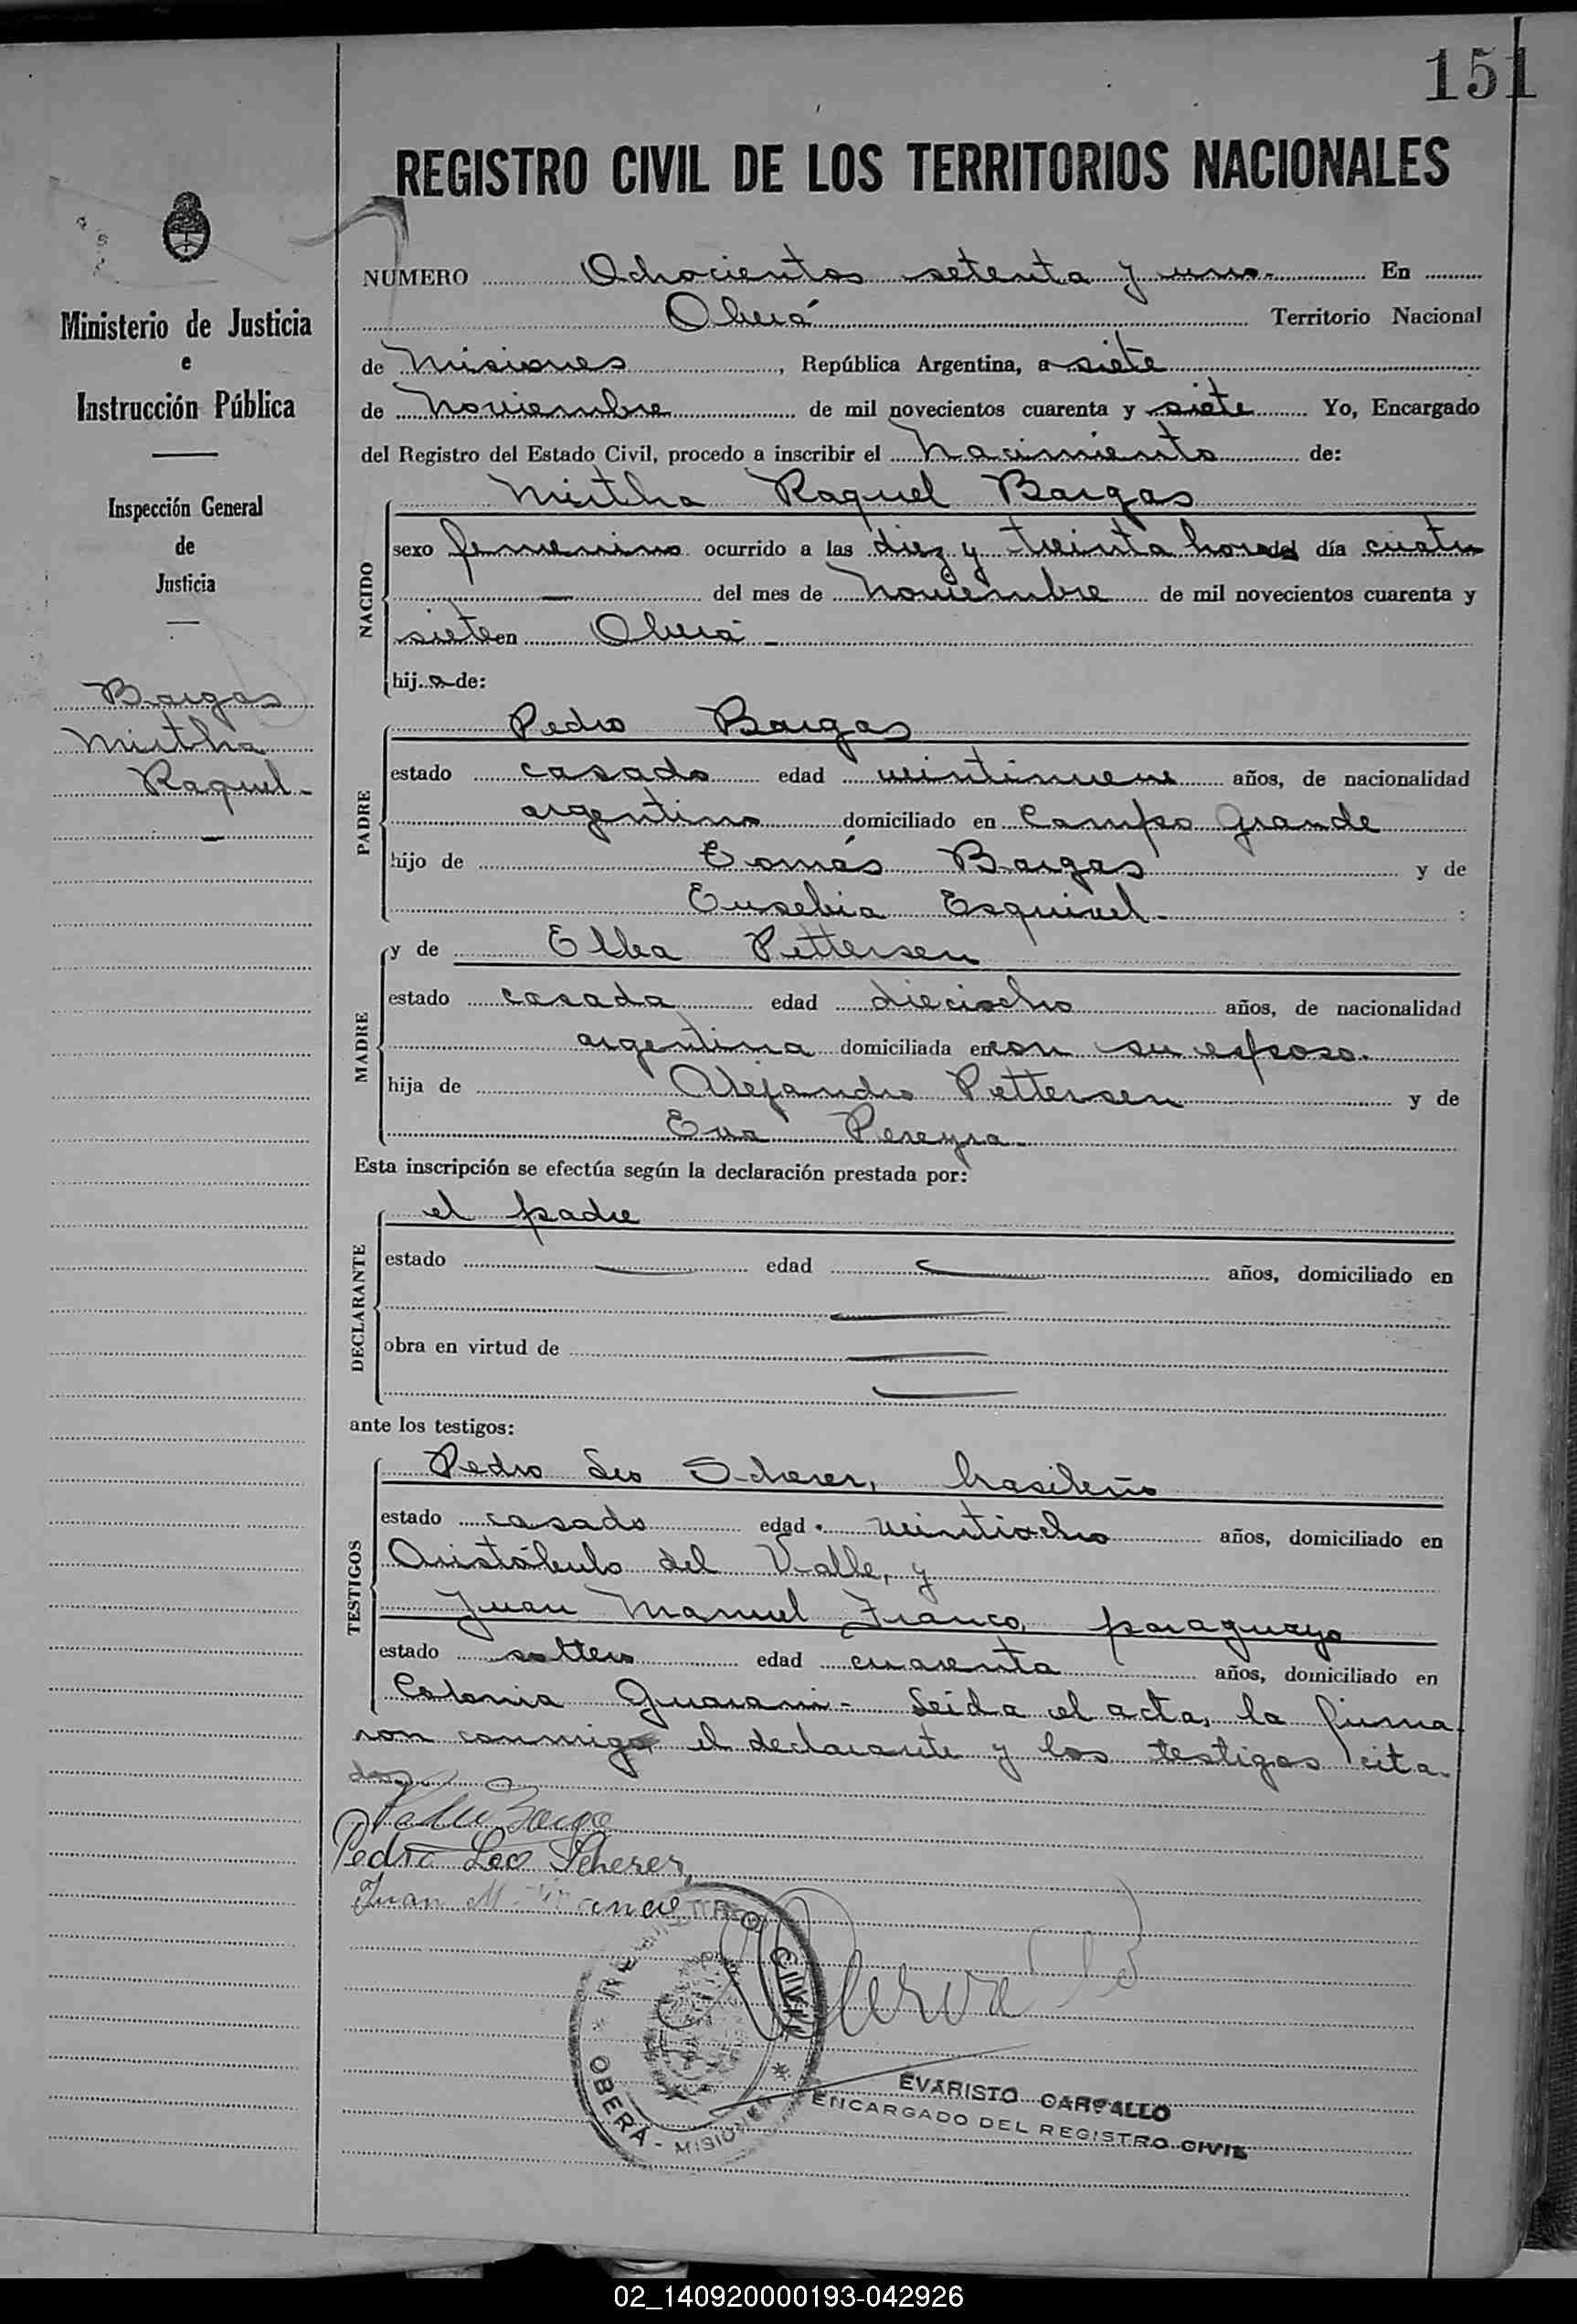 151
REGISTRO CIVIL DE LOS TERRITORIOS NACIONALES
Ministerio de Justicia
e
Instrucción Pública
Inspección General
de
Justicia
Bargas
Mirtha
Raquel.-
NUMERO Ochocientos setenta y uno.- En
Oberá Territorio Nacional
de Misiones, República Argentina, a siete
de Noviembre de mil novecientos cuarenta y siete Yo, Encargado
del Registro del Estado Civil, procedo a inscribir el Nacimiento de:
NACIDO
Mirtha Raquel Bargas
sexo femenino ocurrido a las diez y treinta horas del día cuatro
— del mes de Noviembre de mil novecientos cuarenta y
siete en Oberá -
hij.a de:
PADRE
Pedro Bargas
estado casado edad veintinueve años, de nacionalidad
argentino domiciliado en Campo Grande
hijo de Tomás Bargas y de
Eusebia Esquivel.- :
MADRE
y de Elba Pettersen
estado casada edad dieciocho años, de nacionalidad
argentina domiciliada en con su esposo.
hija de Alejandro Pettersen y de
Eva Pereyra.-
Esta inscripción se efectúa según la declaración prestada por:
DECLARANTE
el padre
estado — edad — años, domiciliado en
—
obra en virtud de —
—
ante los testigos:
TESTIGOS
Pedro Leo Scherer, brasileño
estado casado edad veintiocho años, domiciliado en
Aristóbulo del Valle, y
Juan Manuel Franco, paraguayo
estado soltero edad cuarenta años, domiciliado en
Colonia Guaraní.- Leída el acta, la firma-
ron conmigo el declarante y los testigos cita-
dos
Pedro Leo Scherer
Juan M. Franco
REGISTRO CIVIL
OBERÁ - MISIONES
EVARISTO CARBALLO
ENCARGADO DEL REGISTRO CIVIL
02_140920000193-042926